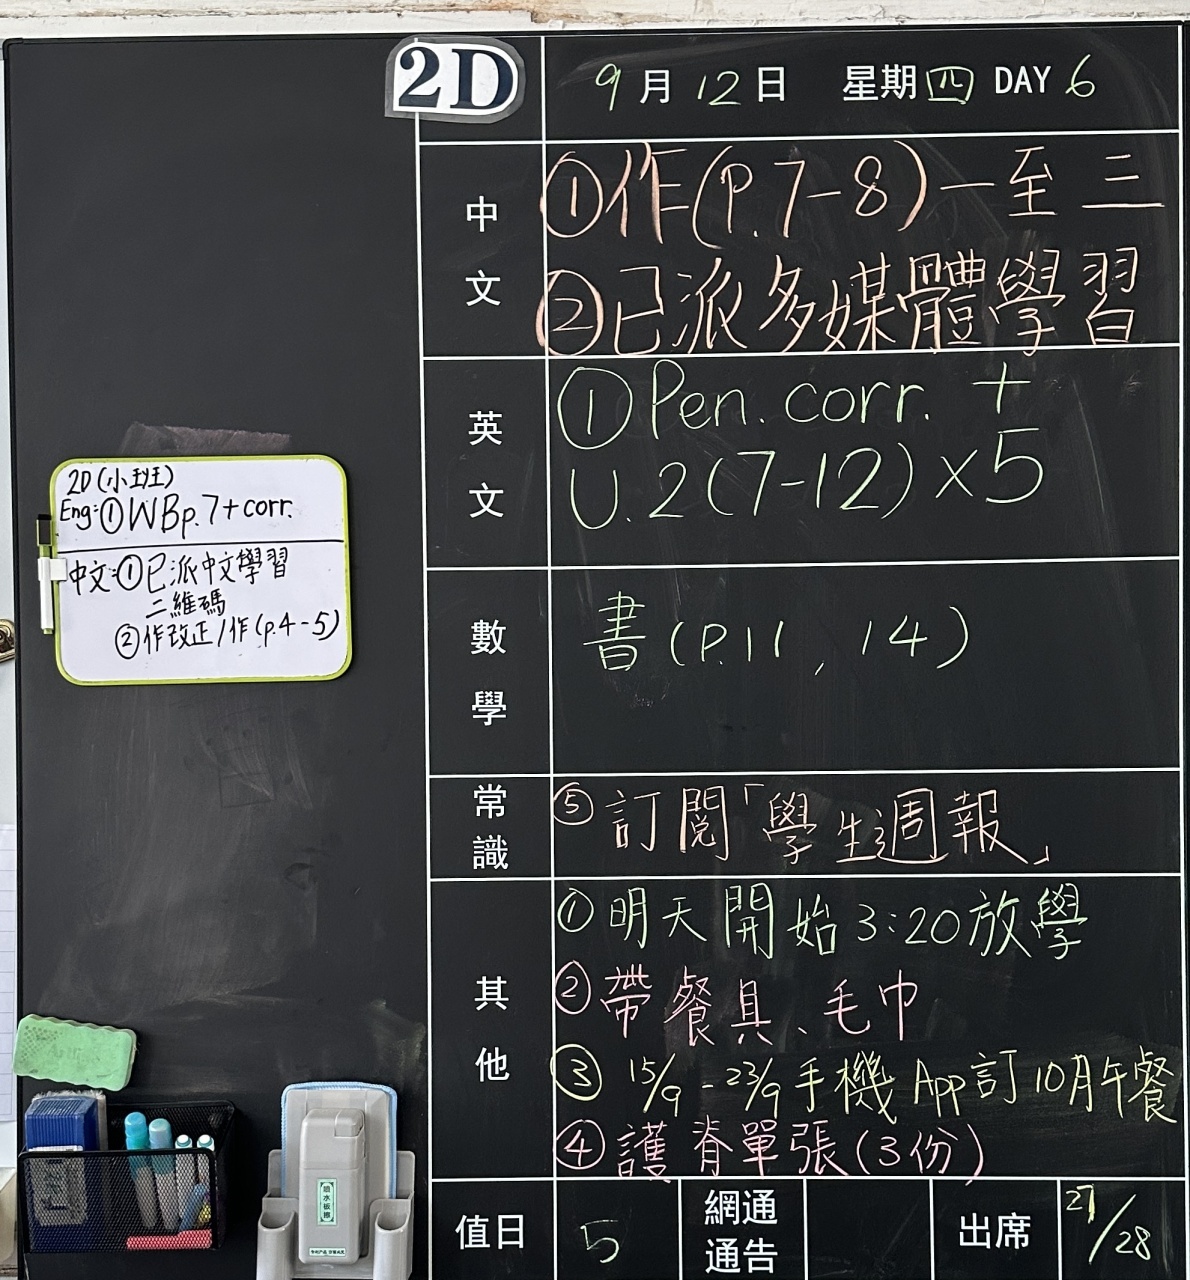 2D
9月12日 星期四 DAY 6
中文
①作(P.7-8)一至三
②已派多媒體學習
英文
①Pen. corr. +
U.2(7-12)×5
數學
書(P.11, 14)
常識
⑤訂閱「學生週報」
其他
①明天開始3:20放學
②帶餐具、毛巾
③15/9-23/9手機App訂10月午餐
④護脊單張(3份)
值日 5 網通通告 出席 27/28
2D(小班)
Eng:①WBp.7+corr.
中文:①已派中文學習
二維碼
②作改正/作(p.4-5)